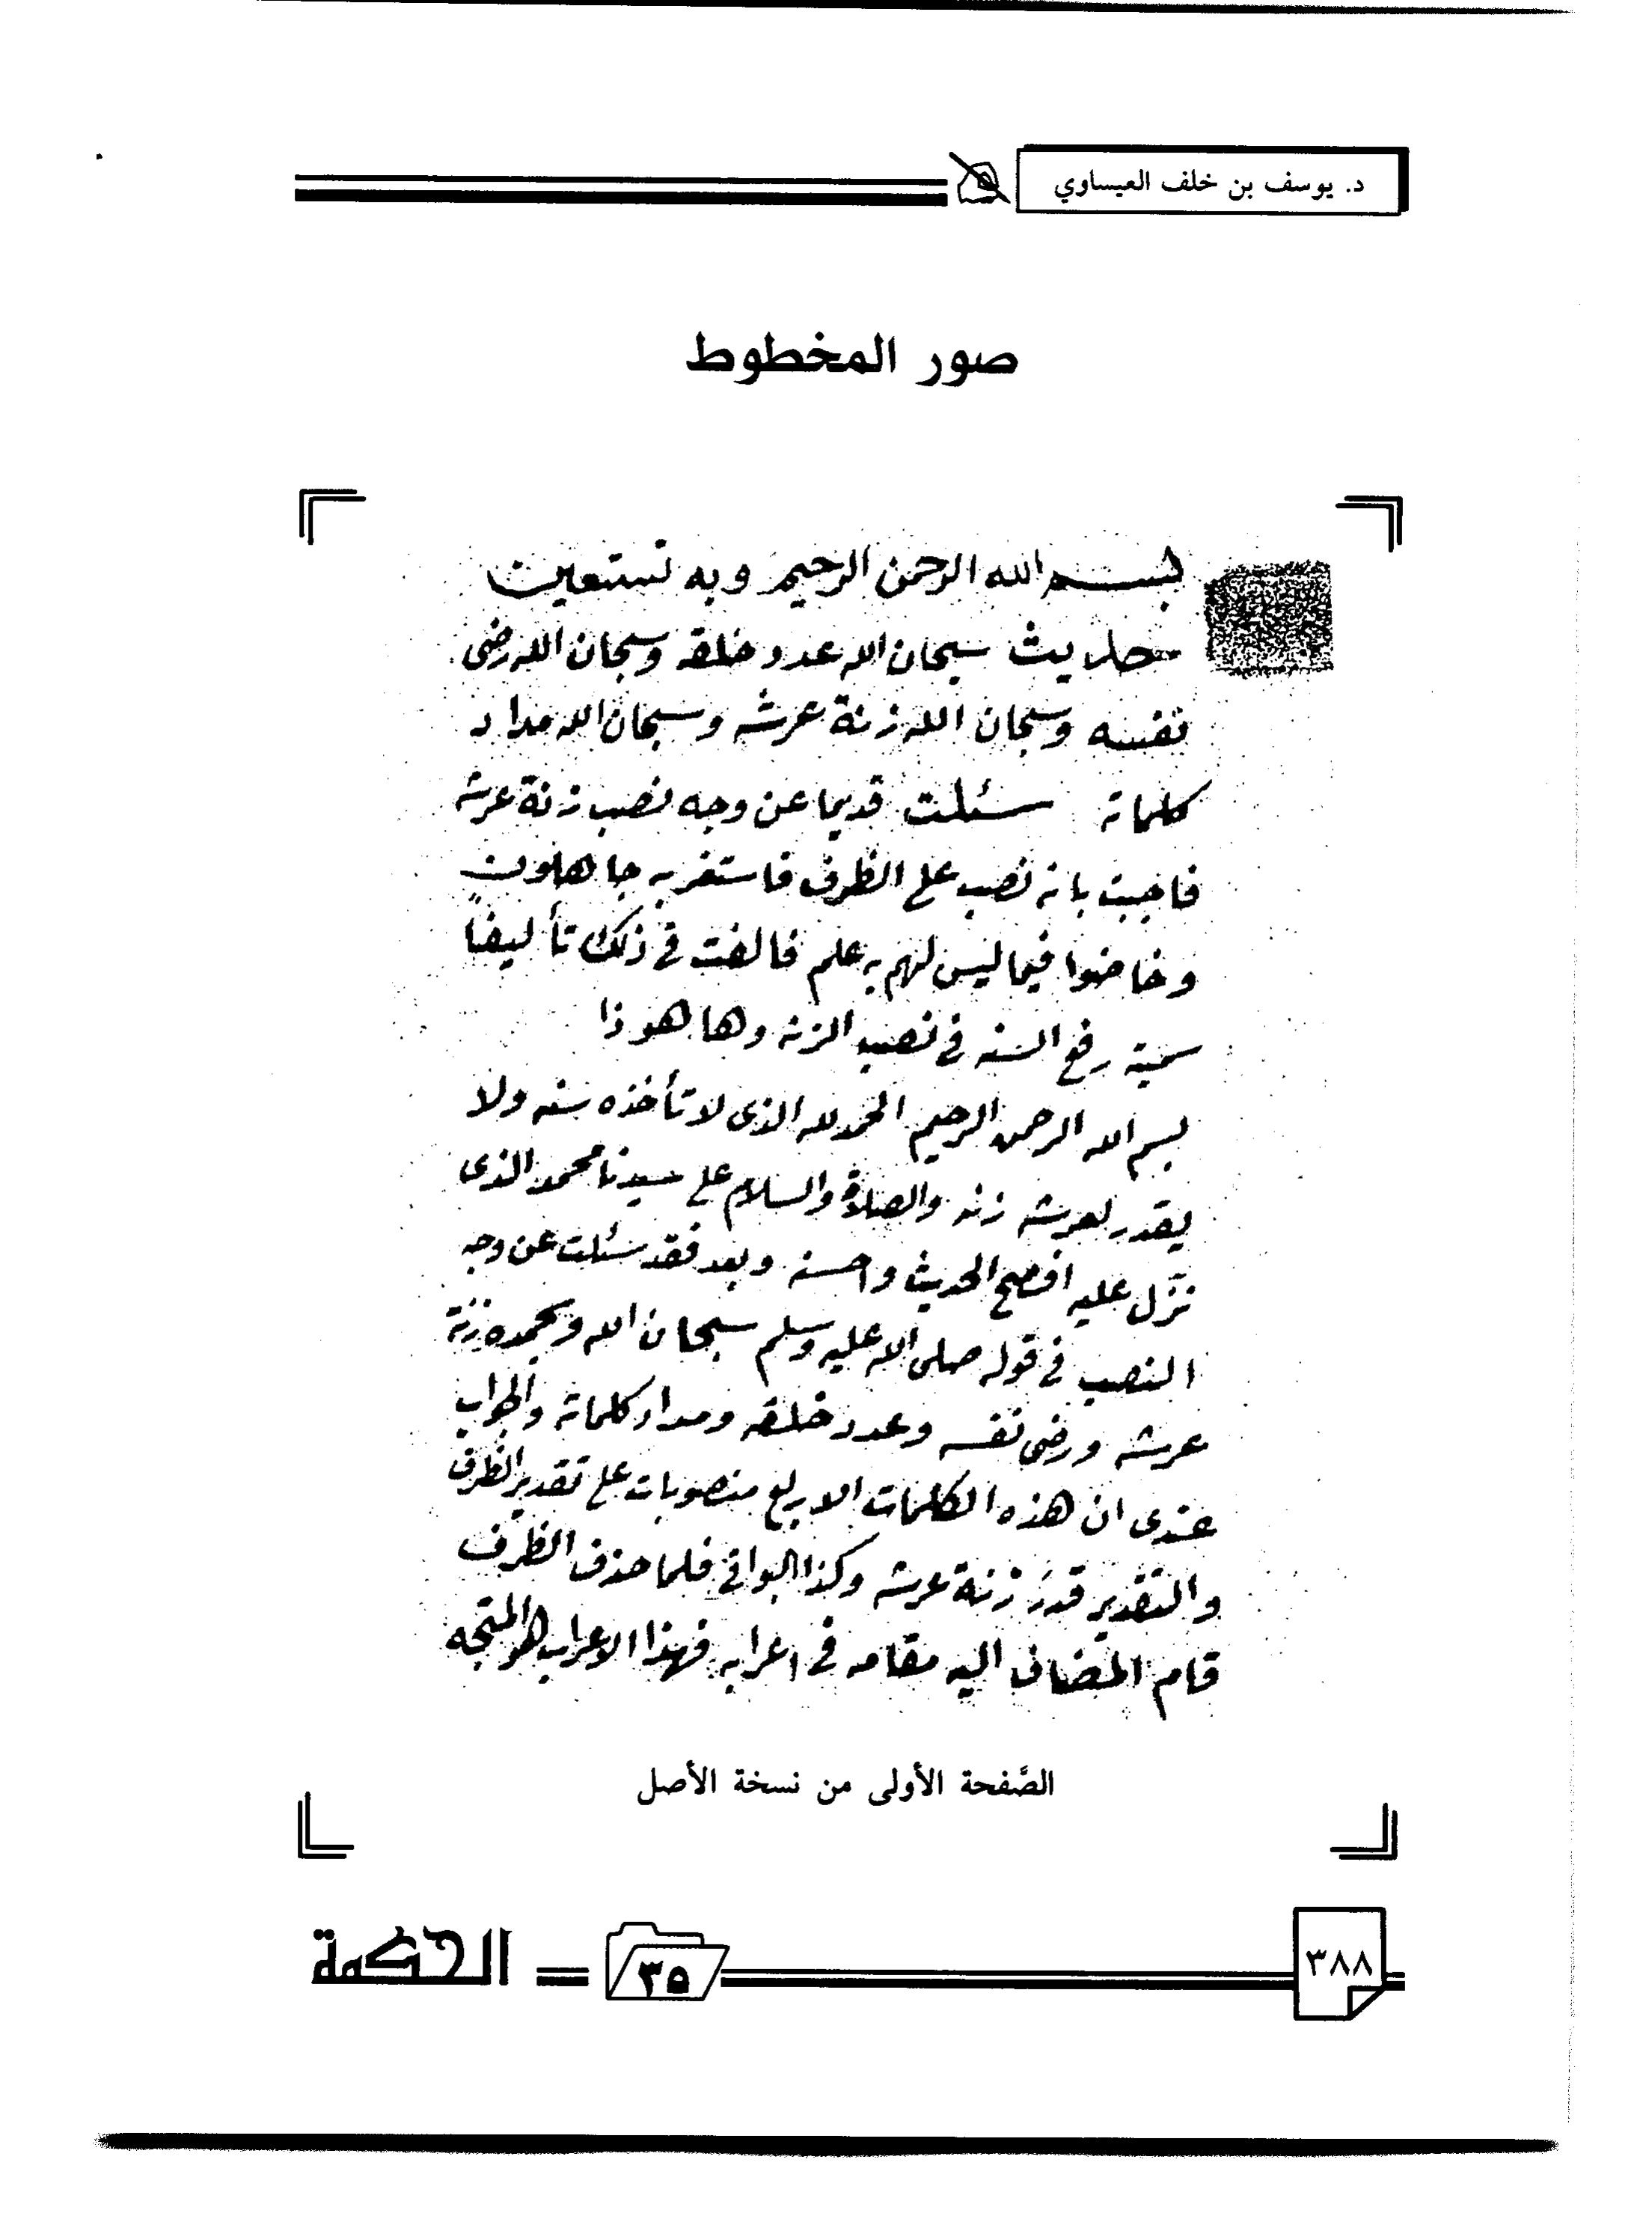 د. يوسف بن خلف العيساوي
صور المخطوط
بسم الله الرحمن الرحيم وبه نستعين
حديث سبحان الله عدد خلقه وسبحان الله رضى
نفسه وسبحان الله زنة عرشه وسبحان الله مداد
كلماته سئلت قديما عن وجه نصب زنة عرشه
فاجبت بانه نصب على الظرف فاستغربه جاهلون
وخاضوا فيما ليس لهم به علم فالفت في ذلك تأليفاً
سميته رفع السنه في نصب الزنه وها هو ذا
بسم الله الرحمن الرحيم الحمد لله الذى لا تأخذه سنه ولا
يقدر لعرشه زنه والصلاة والسلام على سيدنا محمد الذى
نزّل عليه افصح الحديث واحسنه وبعد فقد سئلت عن وجه
النصب في قوله صلى الله عليه وسلم سبحان الله وبحمده زنة
عرشه ورضى نفسه وعدد خلقه ومداد كلماته والجواب
عندى ان هذه الكلمات الاربع منصوبات على تقدير الظرف
والتقدير قدر زنة عرشه وكذا البواقي فلما حذف الظرف
قام المضاف اليه مقامه في اعرابه فهذا الاعراب هو المتجه
الصَّفحة الأولى من نسخة الأصل
٣٨٨
٣٥
الحكمة